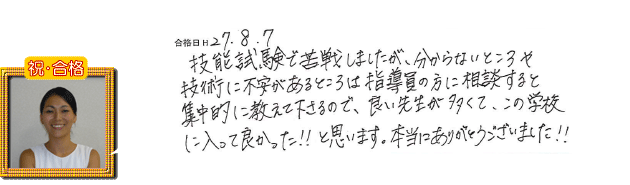 合格日 H 27.8.7
祝・合格
技能試験で苦戦しましたが、分からないところや
技術に不安があるところは指導員の方に相談すると
集中的に教えて下さるので、良い先生が多くて、この学校
に入って良かった!!と思います。本当にありがとうございました!!